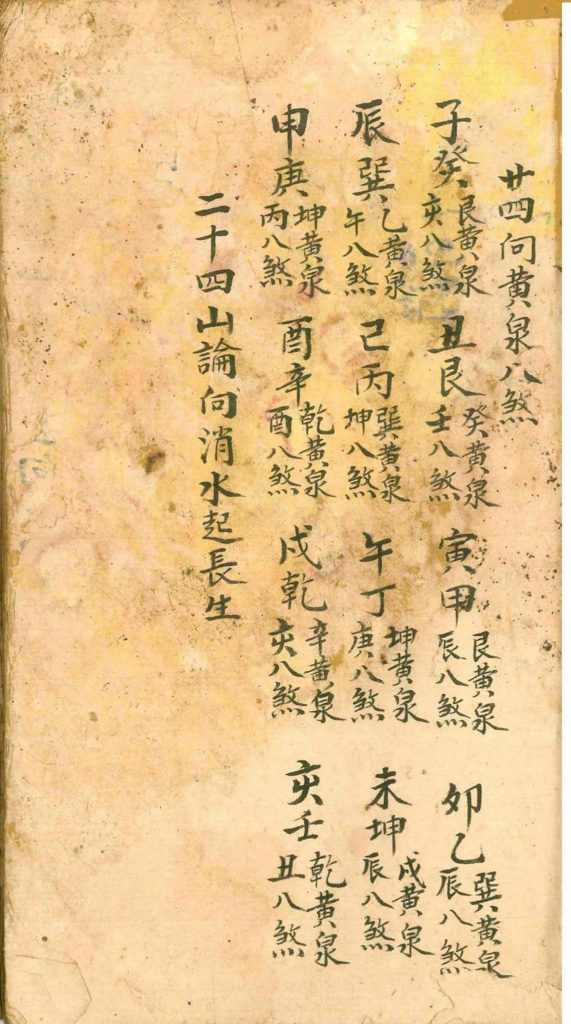 廿四向黃泉八煞
子癸艮黃泉亥八煞 丑艮癸黃泉壬八煞 寅甲艮黃泉辰八煞 卯乙巽黃泉辰八煞
辰巽乙黃泉午八煞 己丙巽黃泉坤八煞 午丁坤黃泉庚八煞 未坤戌黃泉辰八煞
申庚坤黃泉丙八煞 酉辛乾黃泉酉八煞 戌乾辛黃泉亥八煞 亥壬乾黃泉丑八煞
二十四山論向消水起長生